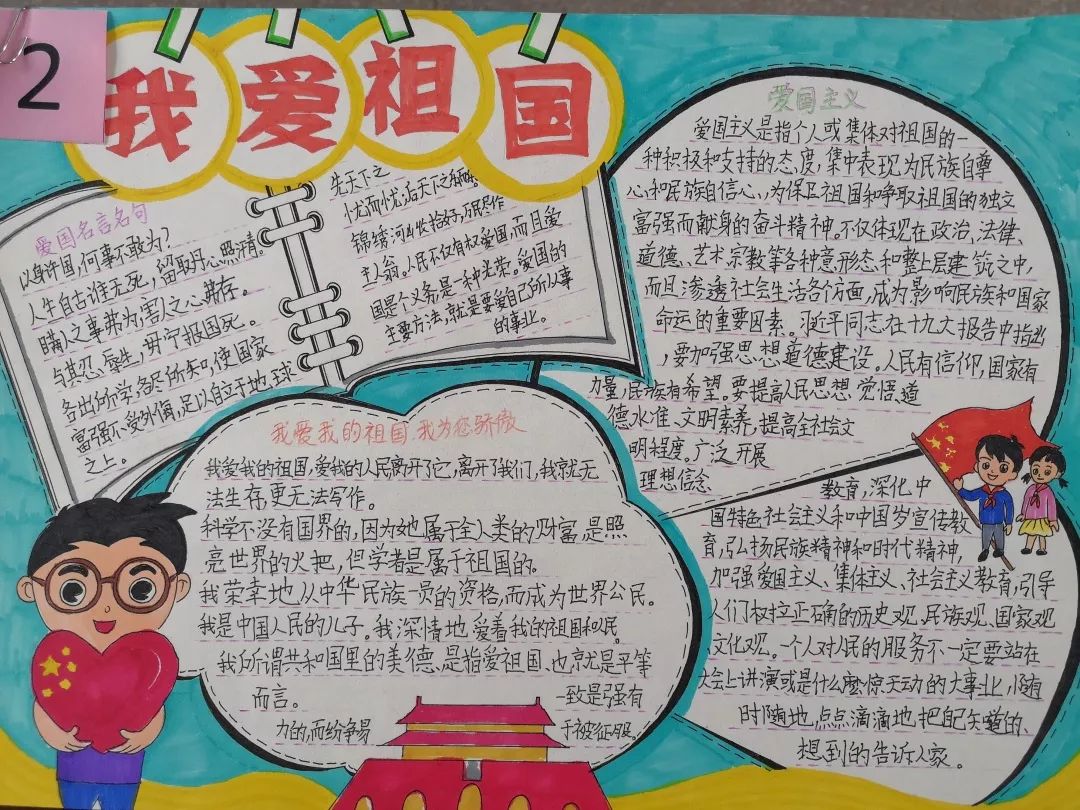 2
我爱祖国
爱国名言名句
以身许国,何事不敢为?
人生自古谁无死,留取丹心照汗青。
瞒人之事弗为,害人之心弗存。
与其忍辱生,毋宁报国死。
各出所学,各尽所知,使国家
富强不受外侮,足以自立于地球
之上。
先天下之
忧而忧,后天下之
锦绣河山收拾好,万民尽作
主人翁。人民不仅有权爱国,而且爱
国是个义务,是一种光荣。爱国的
主要方法,就是要爱自己所从事
的事业。
爱国主义
爱国主义是指个人或集体对祖国的一
种积极和支持的态度,集中表现为民族自尊
心和民族自信心,为保卫祖国和争取祖国的独立
富强而献身的奋斗精神。不仅体现在政治、法律、
道德、艺术、宗教等各种意形态和整上层建筑之中,
而且渗透社会生活各个方面,成为影响民族和国家
命运的重要因素。习近平同志在十九大报告中指出
,要加强思想道德建设。人民有信仰,国家有
力量,民族有希望。要提高人民思想觉悟、道
德水准、文明素养,提高全社会文
明程度。广泛开展
理想信念
教育,深化中
国特色社会主义和中国岁宣传教
育,弘扬民族精神和时代精神,
加强爱国主义、集体主义、社会主义教育,引导
人们权拉正确的历史观、民族观、国家观
文化观。一个人对人民的服务不一定要站在
大会上讲演或是什么麽惊天动的大事业,随
时随地,点点滴滴地把自己知道的、
想到的告诉人家。
我爱我的祖国,我为您骄傲
我爱我的祖国,爱我的人民离开了它,离开了我们,我就无
法生存,更无法写作。
科学不没有国界的,因为她属于全人类的财富,是照
亮世界的火把,但学者是属于祖国的。
我荣幸地从中华民族一员的资格,而成为世界公民。
我是中国人民的儿子。我深情地爱着我的祖国和人民。
我所谓共和国里的美德,是指爱祖国、也就是平等
而言。 一致是强有
力的,而纷争易 于被征服。